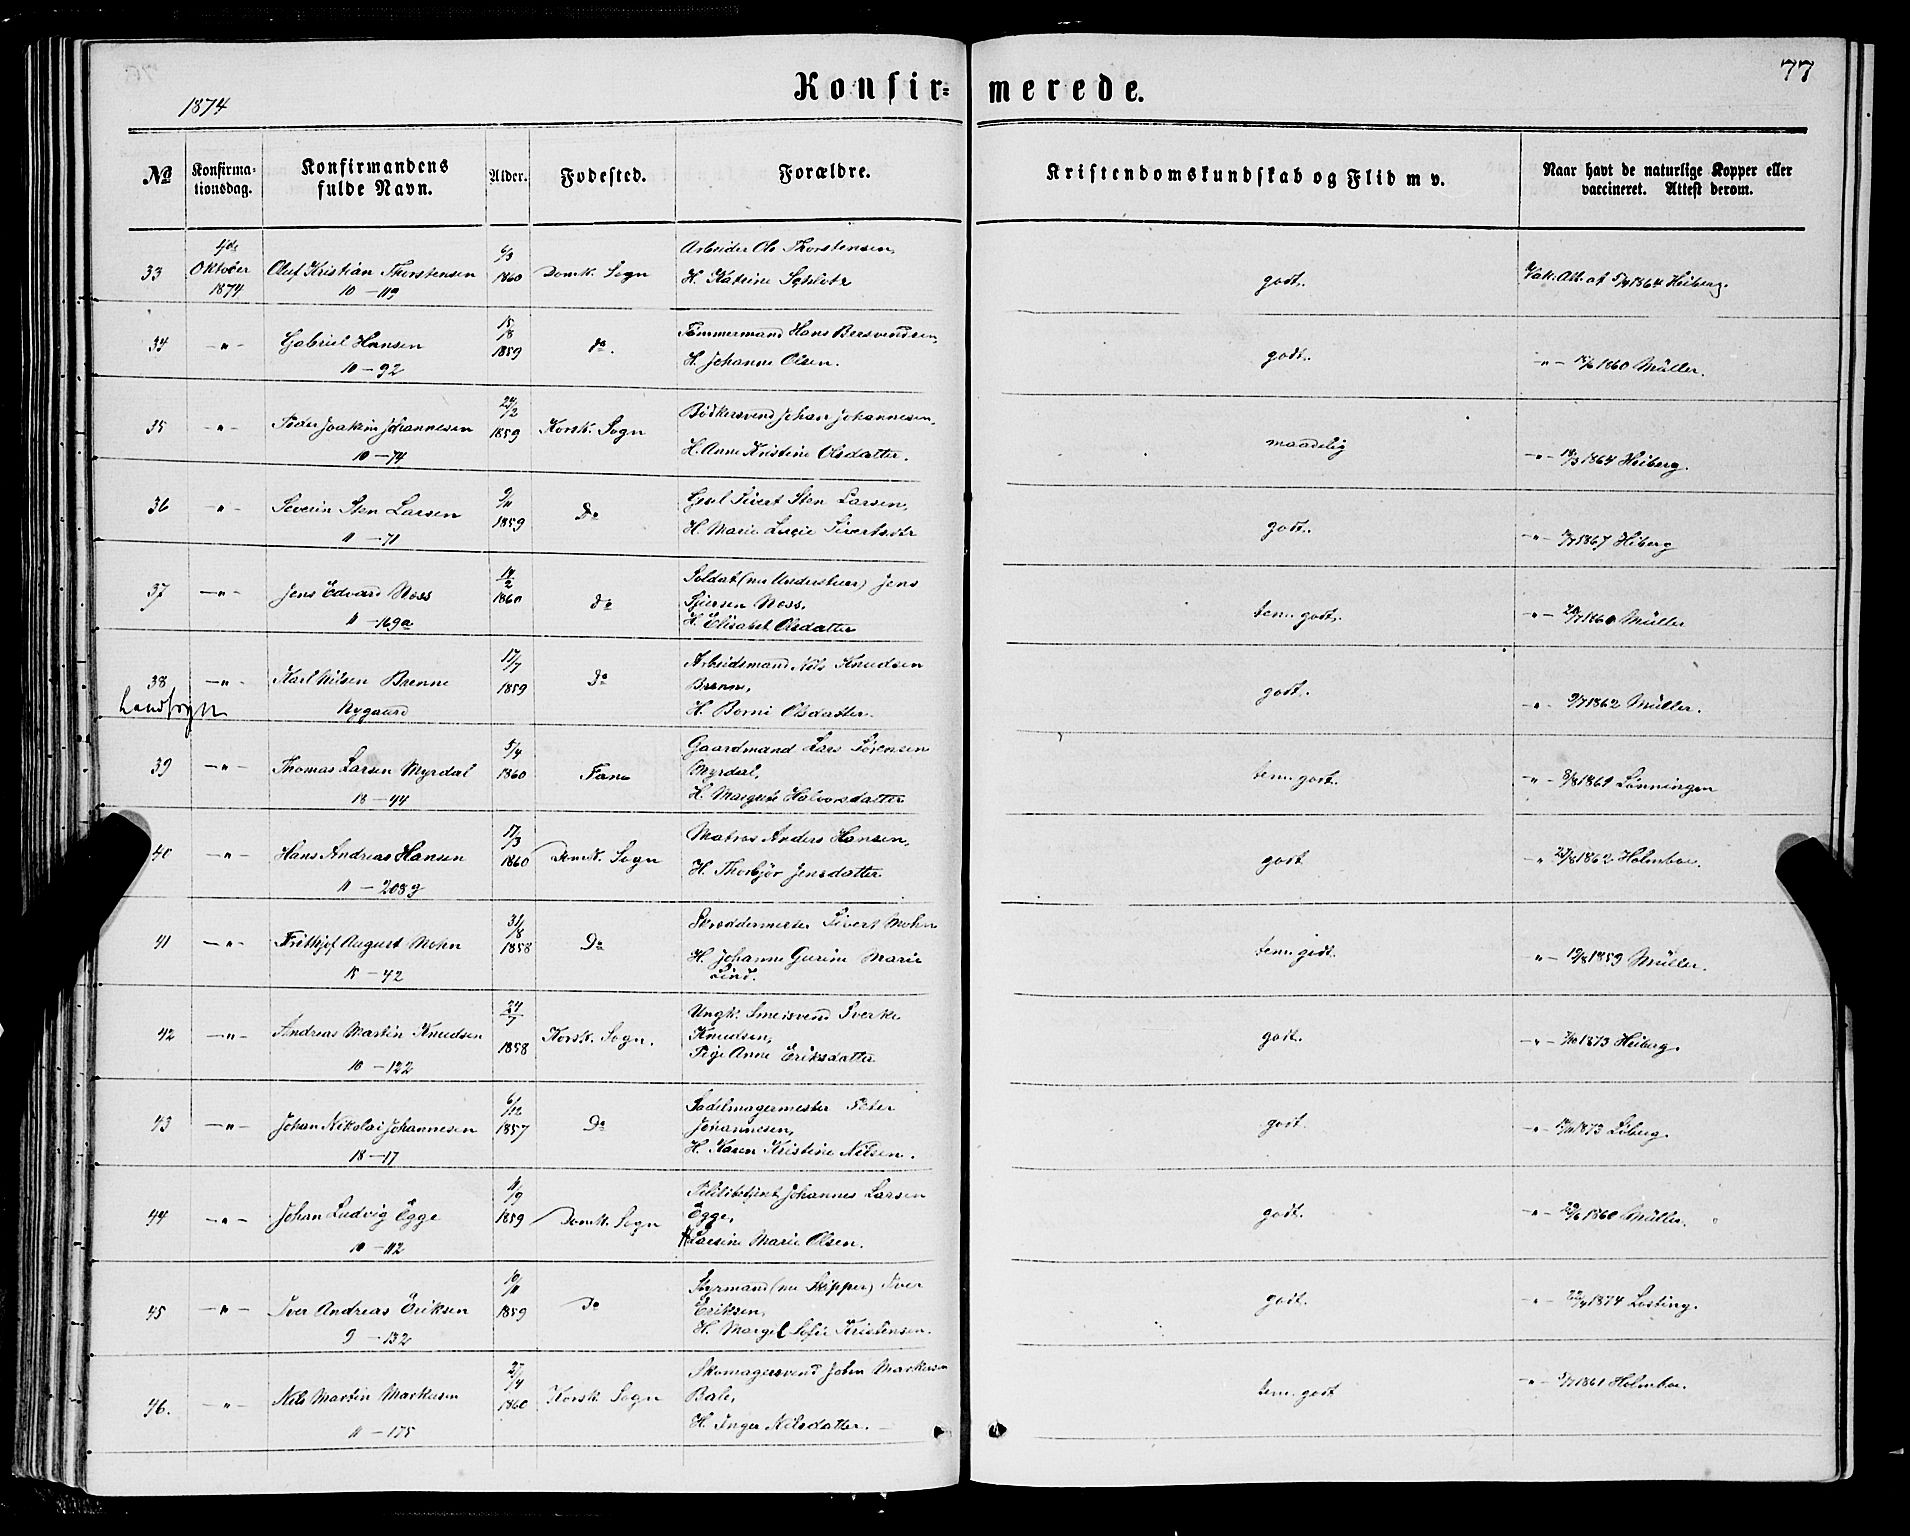 77
1874
Konfir=merede.
No
Konfirma-
tionsdag.
Konfirmandens
fulde Navn.
Alder.
Fødested.
Forældre.
Kristendomskundskab og Flid m v.
Naar havt de naturlige Kopper eller
vaccineret. Attest derom.
33 Oktober 1874 Oluf Kristian Thorstensen 6/3 1860 Domk. Sogn Arbeider Ole Thorstensen,
10 - 119 H. Katrine godt. Vak. Att. af 1864 Heiberg.
34 -"- Gabriel Hansen 15/8 1859 do. Tømmermand Hans Bersvendsen,
10 - 92 H. Johanne Olsen. godt. -"- 1860 Müller.
35 -"- Peder Joakim Johannesen 24/2 1859 Korsk. Sogn Bødkersvend Johan Johannesen,
10 - 74 H. Anne Kristine Olsdatter. maadelig -"- 1864 Heiberg.
36 -"- Severin Sten Larsen 9/11 1859 Do Sivert Sten Larsen,
11 - 71 H. Marie Lucie Sivertsdtr godt. -"- 1867 Hiberg
37 -"- Jens Edvard Næss 14/2 1860 do Soldat (nu Understuer) Jens
Næss,
11 - 169a H. Elisabet Olsdatter tem. godt. -"- 1860 Müller
38 -"- Karl Nilsen Brenne 17/7 1859 Do Arbeidsmand Nils Knudsen
Landsogn Nygaard Brenne,
H. Borni Olsdatter. godt. -"- 9/7 1862 Müller.
39 -"- Thomas Larsen Myrdal 5/4 1860 Fane Gaardmand Lars Sørensen
Myrdal,
18 - 44 H. Margrete Halvorsdatter tem. godt. -"- 1861 Lønningen
40 -"- Hans Andreas Hansen 17/3 1860 Domk. Sogn Matros Anders Hansen,
11 - 208g H. Thorbjør Jensdatter. godt -"- 1862 Holmboe.
41 -"- Frithjof August Mohn 31/8 1858 Do Skræddermester Sivert Mohn
15 - 42 H. Johanne Gurine Marie
Lind. tem. godt. -"- 1859 Müller.
42 -"- Andreas Martin Knudsen 24/7 1858 Korsk. Sogn. Ungk. Smedsvend Sverke
Knudsen,
10 - 122 Pige Anne Eriksdatter godt. -"- 1873 Heiberg.
43 -"- Johan Nikolai Johannesen 6/12 1857 Do Sadelmagermester Peter
Johannesen,
18 - 17 H. Karen Kristine Nilsen. godt. -"- 1873 Løberg.
44 -"- Johan Ludvig Egge 11/9 1859 Domk. Sogn Politibetjent Johannes Larsen
Egge,
10 - 112 H. Larsine Marie Olsen. godt. -"- 1860 Müller.
45 -"- Iver Andreas Eriksen 10/11 1859 do Styrmand (nu Skipper) Iver
Eriksen,
9 - 132 H. Margit Sofie Kristensen. godt. -"- 1874 Losting.
46. -"- Nils Martin Markusen 27/4 1860 Korsk. Sogn Skomagersvend John Markusen
Bale,
11 - 175 H. Inger Nilsdatter. tem. godt -"- 1861 Holmboe.